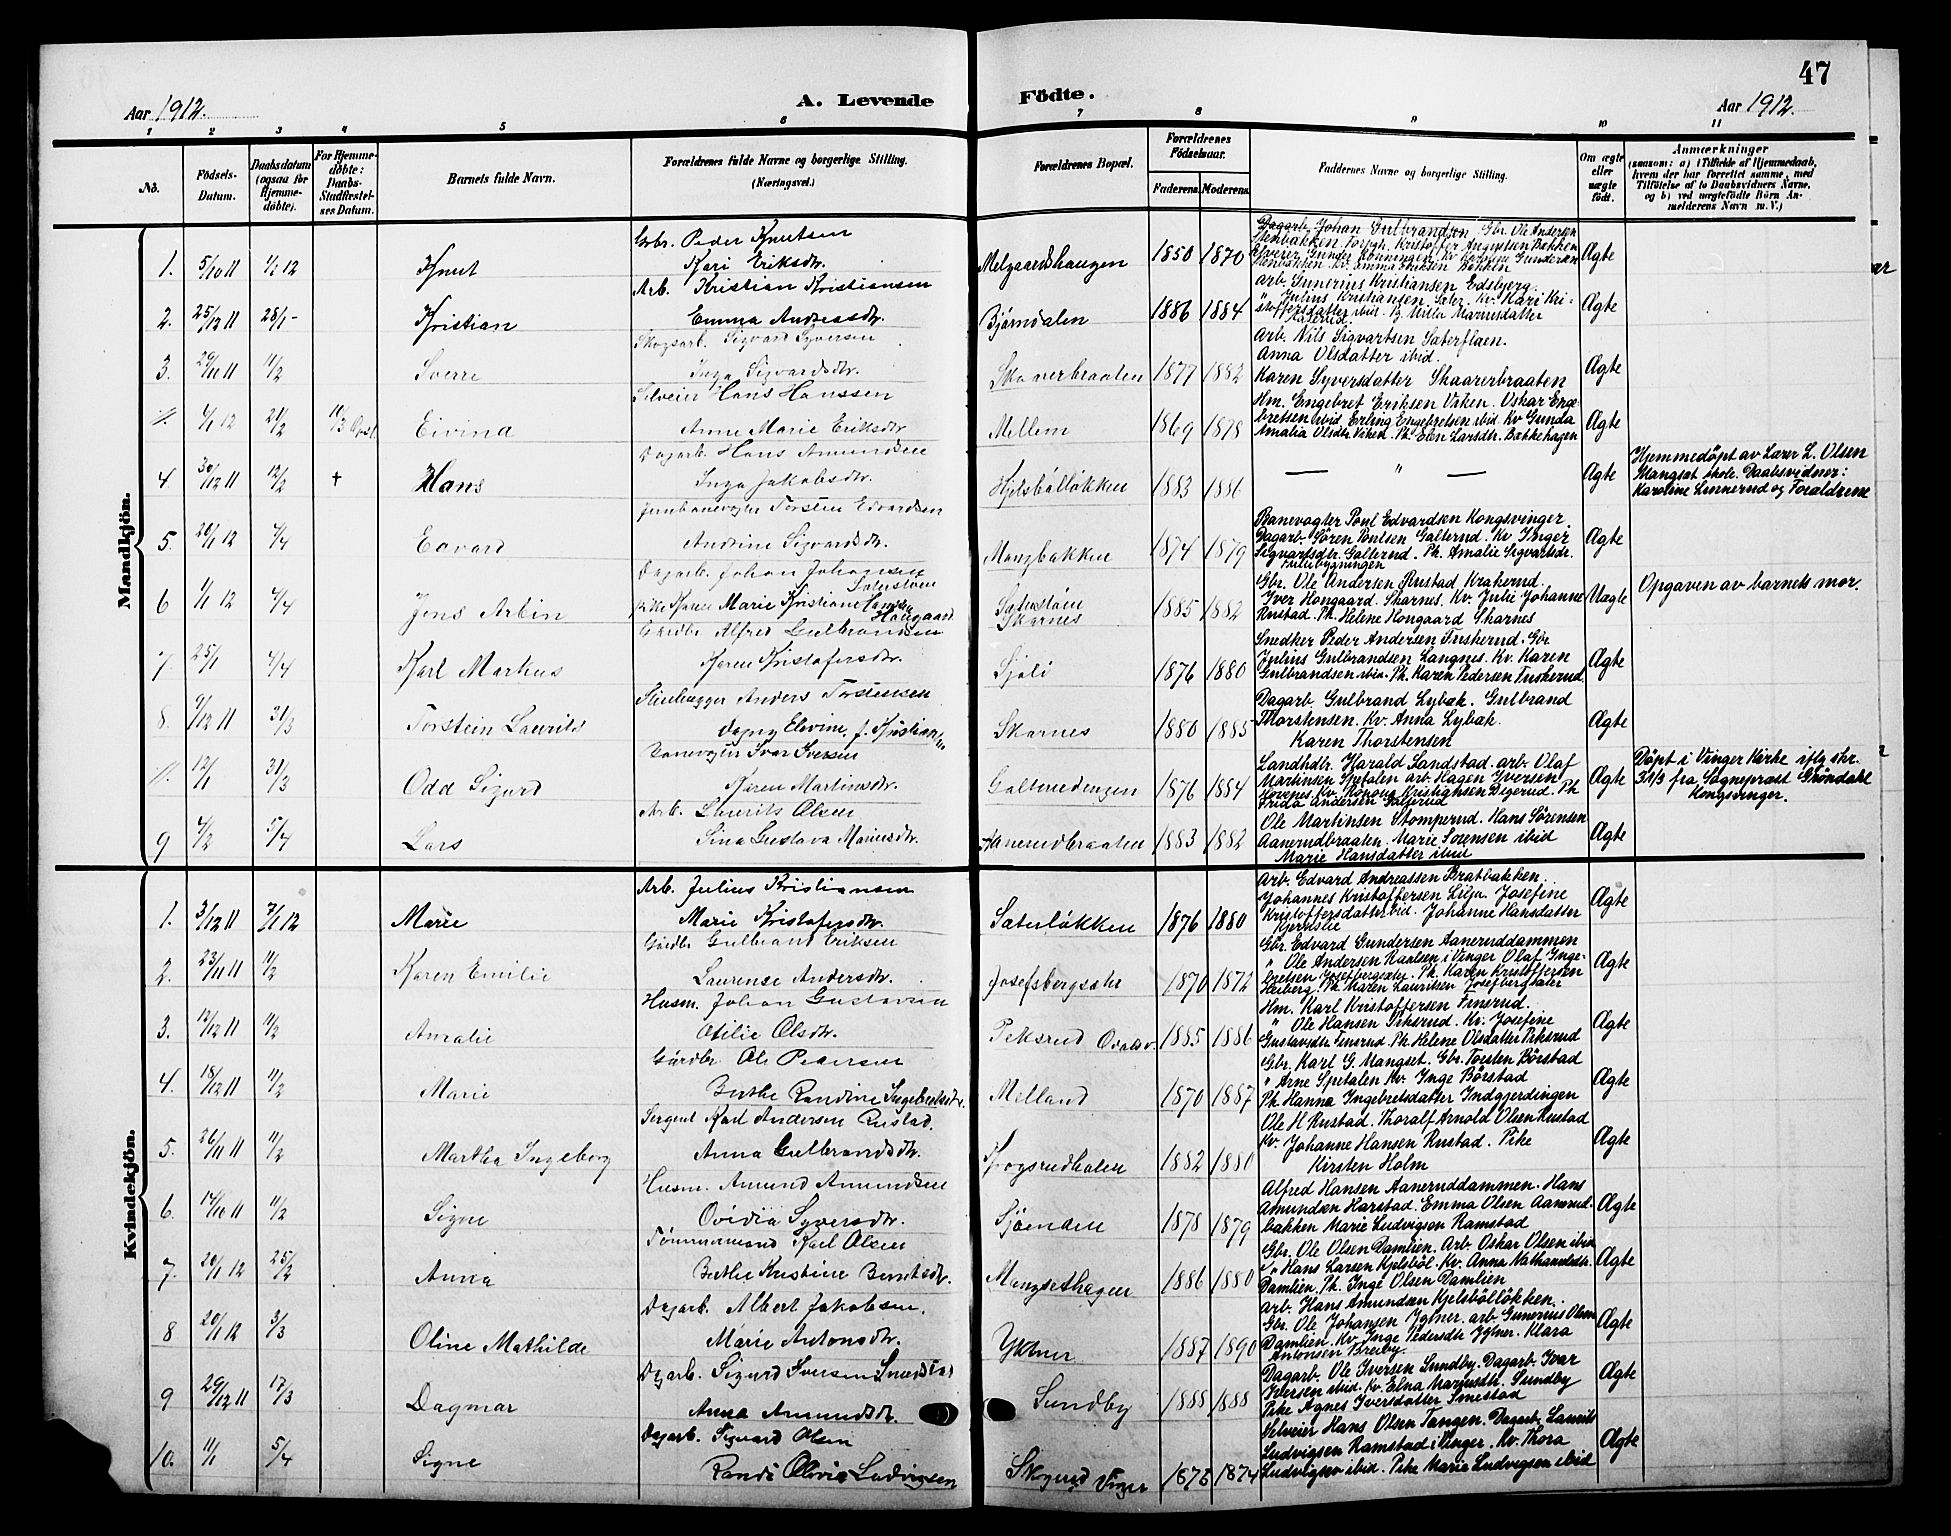 47
Aar 1912.
A. Levende
Födte.
Aar 1912.
1 2 3 4 5 6 7 8 9 10 11
No.
Födsels-Datum.
Daabsdatum (ogsaa for Hjemme-døbte).
For Hjemme-døbte: Daabs-Stadfæstel-ses Datum.
Barnets fulde Navn.
Forældrenes fulde Navne og borgerlige Stilling.
(Næringsvei.)
Forældrenes Bopæl.
Forældrenes Födselsaar.
Faderens. Moderens.
Faddernes Navne og borgerlige Stilling.
Om ægte eller uægte født.
Anmærkninger
(saasom: a) i Tilfælde af Hjemmedaab,
hvem der har forrettet samme, med
Tilföielse af to Daabsvidners Navne,
og b) ved uægtefödte Börn An-
melderens Navn m. V.)
Mandkjön.
1. 5/10 11 1/1 12 Knut
Gbr. Peder Knutsen
Kari Eriksdtr.
Melgaardshaugen 1850 1870
Dagarb. Johan Gulbrandsen Gbr. Ole Andersen
Ægte
2. 25/12 11 28/1 - Kristian
Arb. Kristian Kristiansen
Emma Andreasdtr.
Bjørndalen 1886 1884
Arb. Gunerius Kristiansen Edsberg.
Ægte
3. 29/11 11 11/2 Sverre
Skogsarb. Sigvard Syversen
Inga Sigvardsdtr.
Skaarerbraaten 1877 1882
Arb. Nils Sigvartsen Saterflaen.
Anna Olsdatter ibid.
Karen Syversdatter Skaarerbraaten
Ægte
4/1 12 21/2 Eivind
Selveier Hans Hanssen
Anne Marie Eriksdtr.
Mellem 1869 1878
Hm. Engebret Eriksen Viken. Oskar Enge-
bretsen ibid. Erling Engebretsen ibid Kv Gunda
Amalia Olsdtr. Viken. Ph. Elen Larsdtr. Bækkehagen
Ægte
4 30/12 11 12/2 + Hans
Dagarb. Hans Amundsen
Inga Jakobsdtr.
Hjelsbölløkken 1883 1886
— " —
Ægte
Hjemmedöpt av Lærer L. Olsen
Mangset skole. Daabsvidner:
Karoline Linnerud og Forældrene
5. 20/1 12 4/4 Edvard
Jernbanevogter Torsten Edvardsen
Andrine Sigvardsdtr.
Mangbakken 1874 1879
Banevogter Poul Edvardsen Kongsvinger.
Dagarb. Sören Poulsen Galterud. Kv Inger
Sigvartsdtr. Galterud. Ph. Amalie Sigvartsdtr.
Ægte
6 1/1 12 4/4 Jens Arbin
Dagarb. Johan Johansen
Pike Karen Marie Kristiane
Skarnes 1885 1882
Gbr. Ole Andersen Rustad Krakerud.
Iver Hongaard. Skarnes. Kv. Julie Johanne
Rustad. Ph. Helene Hongaard Skarnes
Uægte
Opgaven av barnets mor.
7. 25/1 4/4 Karl Martius
Gaardbr. Alfred Gulbrandsen
Karen Kristofersdtr.
Sjöli 1876 1880
Snedker Peder Andersen Fuskerud. Gbr
Julius Gulbrandsen Langnes. Kv. Karen
Gulbrandsen ibid. Ph. Karen Pedersen Fuskerud
Ægte
8. 9/12 11 31/3 Torstein Laurits
Stenhugger Anders Torstensen
Dagny Elvine, f. Kristiansen
Skarnes 1880 1885
Dagarb Gulbrand Lybak. Gulbrand
Thorstensen. Kv. Anna Lybak.
Karen Thorstensen
Ægte
12/1 31/3 Odd Sigurd
Banevogter Ivar Iversen
Karen Martinsdtr.
Galterudengen 1876 1884
Landhdlr. Harald Sandstad. arb. Olaf
Martinsen Spetalen arb. Hagen Iversen
Frida Andersen Galterud
Ægte
Döpt i Vinger Kirke iflg skr.
31/3 fra Sogneprest Gröndahl
Kongsvinger.
9 4/2 5/4 Lars
Arb. Laurits Olsen
Sina Gustava Mariusdtr.
Aanerudbraaten 1883 1882
Ole Martinsen Stomperud. Hans Sörensen
Aanerudbraaten. Marie Sorensen ibid
Marie Hansdatter ibid
Ægte
Kvindekjön.
1. 3/12 11 7/1 12 Marie
Arb. Julius Kristiansen
Marie Kristofersdtr.
Saterlökken 1876 1880
Arb. Edvard Andreassen Bratbakken.
Johannes Kristoffersen Lilja. Josefine
Kristoffersdatter ibid. Johanne Hansdatter
Kjernslie
Ægte
2. 23/11 11 11/2 Karen Emilie
Gaardbr Gulbrand Eriksen
Laurense Andersdtr.
Josefsbergsater 1870 1872
Gbr. Edvard Gundersen Aaneruddammen
" Ole Andersen Kaalsen i Vinger Olaf Inge-
bretsen Josefbergsæter. Ph. Karen Kristoffersen
Seiberg. Ph. Maren Lauritsen Josefbergsæter
Ægte
3. 12/12 11 11/2 Amalie
Husm. Johan Gustavsen
Otilie Olsdtr.
Piksrud Odalsv. 1885 1886
Hm. Karl Kristoffersen Finsrud.
" Ole Hansen Piksrud. Kv. Josefine
Gustavsdtr Finsrud. Ph. Helene Olsdatter Piksrud
Ægte
4. 18/12 11 11/2 Marie
Gaardbr Ole Pedersen
Berthe Randine Ingebretsdtr.
Melland 1870 1887
Gbr. Karl G. Mangset. Gbr. Torsten Börstad
" Arne Spetalen Kv. Inge Börstad
Ph. Hanna Ingebretsdatter Indgjerdingen
Ægte
5. 26/11 11 11/2 Martha Ingeborg
Sergent Karl Andersen Rustad.
Anna Gulbrandsdtr.
Skogsrudhalen 1882 1880
Ole H Rustad. Thoralf Arnold Olsen Rustad
Kv. Johanne Hansen Rustad. Pike
Kirsten Holm
Ægte
6. 17/10 11 11/2 Signe
Husm. Amund Amundsen
Ovidia Syversdtr.
Sjöenden 1878 1879
Alfred Hansen Aaneruddammen. Hans
Amundsen Harstad. Emma Olsen Aanrud-
bakken Marie Ludvigson Ramstad
Ægte
7. 20/1 12 25/2 Anna
Tömmermand Karl Olsen
Berthe Kristine Berntsdtr.
Mangsethagen 1886 1880
Gbr. Ole Olsen Damlien. Arb. Oskar Olsen ibid
" Hans Larsen Kjelsböl. Kv. Anna Nathanielsdtr.
Damlien. Ph. Inge Olsen Damlien
Ægte
8 20/1 12 3/3 Oline Mathilde
Dagarb. Albert Jakobsen.
Marie Antonsdtr.
1887 1890
Arb. Hans Amundsen Kjelsböllökken.
Gbr. Ole Johansen Igtner. arb. Gunerius Olsen
Damlien. Kv. Inge Pedersdtr Igtner. Klara
Antonsen Breiby.
Ægte
9 29/12 11 17/3 Dagmar
Dagarb. Sigurd Iversen Smestad
Anna Amundsdtr.
Sundby 1888 1888
Dagarb. Ole Iversen Sundby. Dagarb. Ivar
Iversen ibid. Kv. Elna Mariusdtr. Sundby
Pike Agnes Iversdatter Smestad
Ægte
10. 11/1 5/4 Signe
Dagarb. Sigvard Olsen
Randi Olivia Ludvigsen
Skogrud Vinger 1873 1874
Selveier Hans Olsen Tangen. Dagarb. Laurits
Ludvigsen Ramstad i Vinger. Kv. Thora
Ludvigsen ibid. Pike Maria Ludvigsen ibid
Ægte